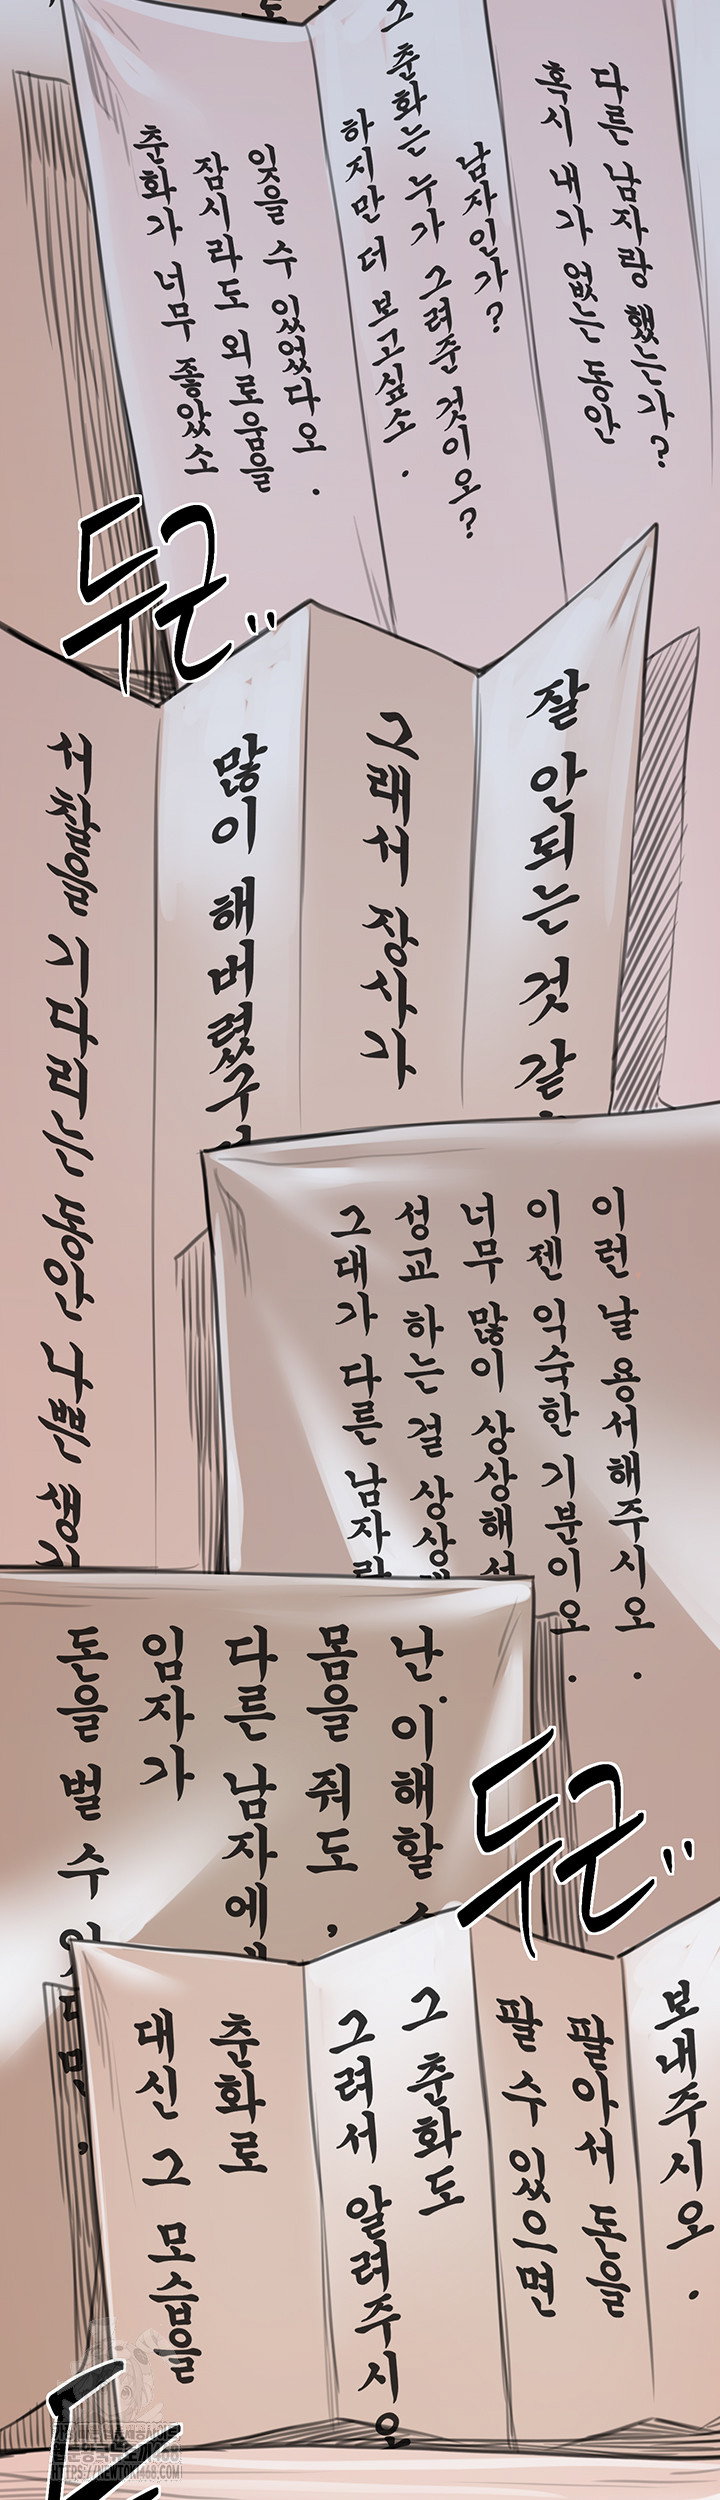 춘화가 너무 좋았소
잠시라도 외로움을
잊을 수 있었다오.
하지만 더 보고싶소.
그 춘화는 누가 그려준 것이오?
남자인가?
혹시 내가 없는 동안
다른 남자랑 했는가?
두근"
서찰을 기다리는 동안 나쁜
많이 해버렸구
그래서 장사가
잘 안되는 것 같
그대가 다른 남자랑
성교 하는 걸 상상
너무 많이 상상해서
이젠 익숙한 기분이오.
이런 날 용서해주시오.
돈을 벌 수 있다면,
임자가
다른 남자에게
몸을 줘도,
난 이해할 수
두근"
대신 그 모습을
춘화로
그려서 알려주시오
그 춘화도
팔 수 있으면
팔아서 돈을
보내주시오.
HTTPS://NEWTOKI468.COM